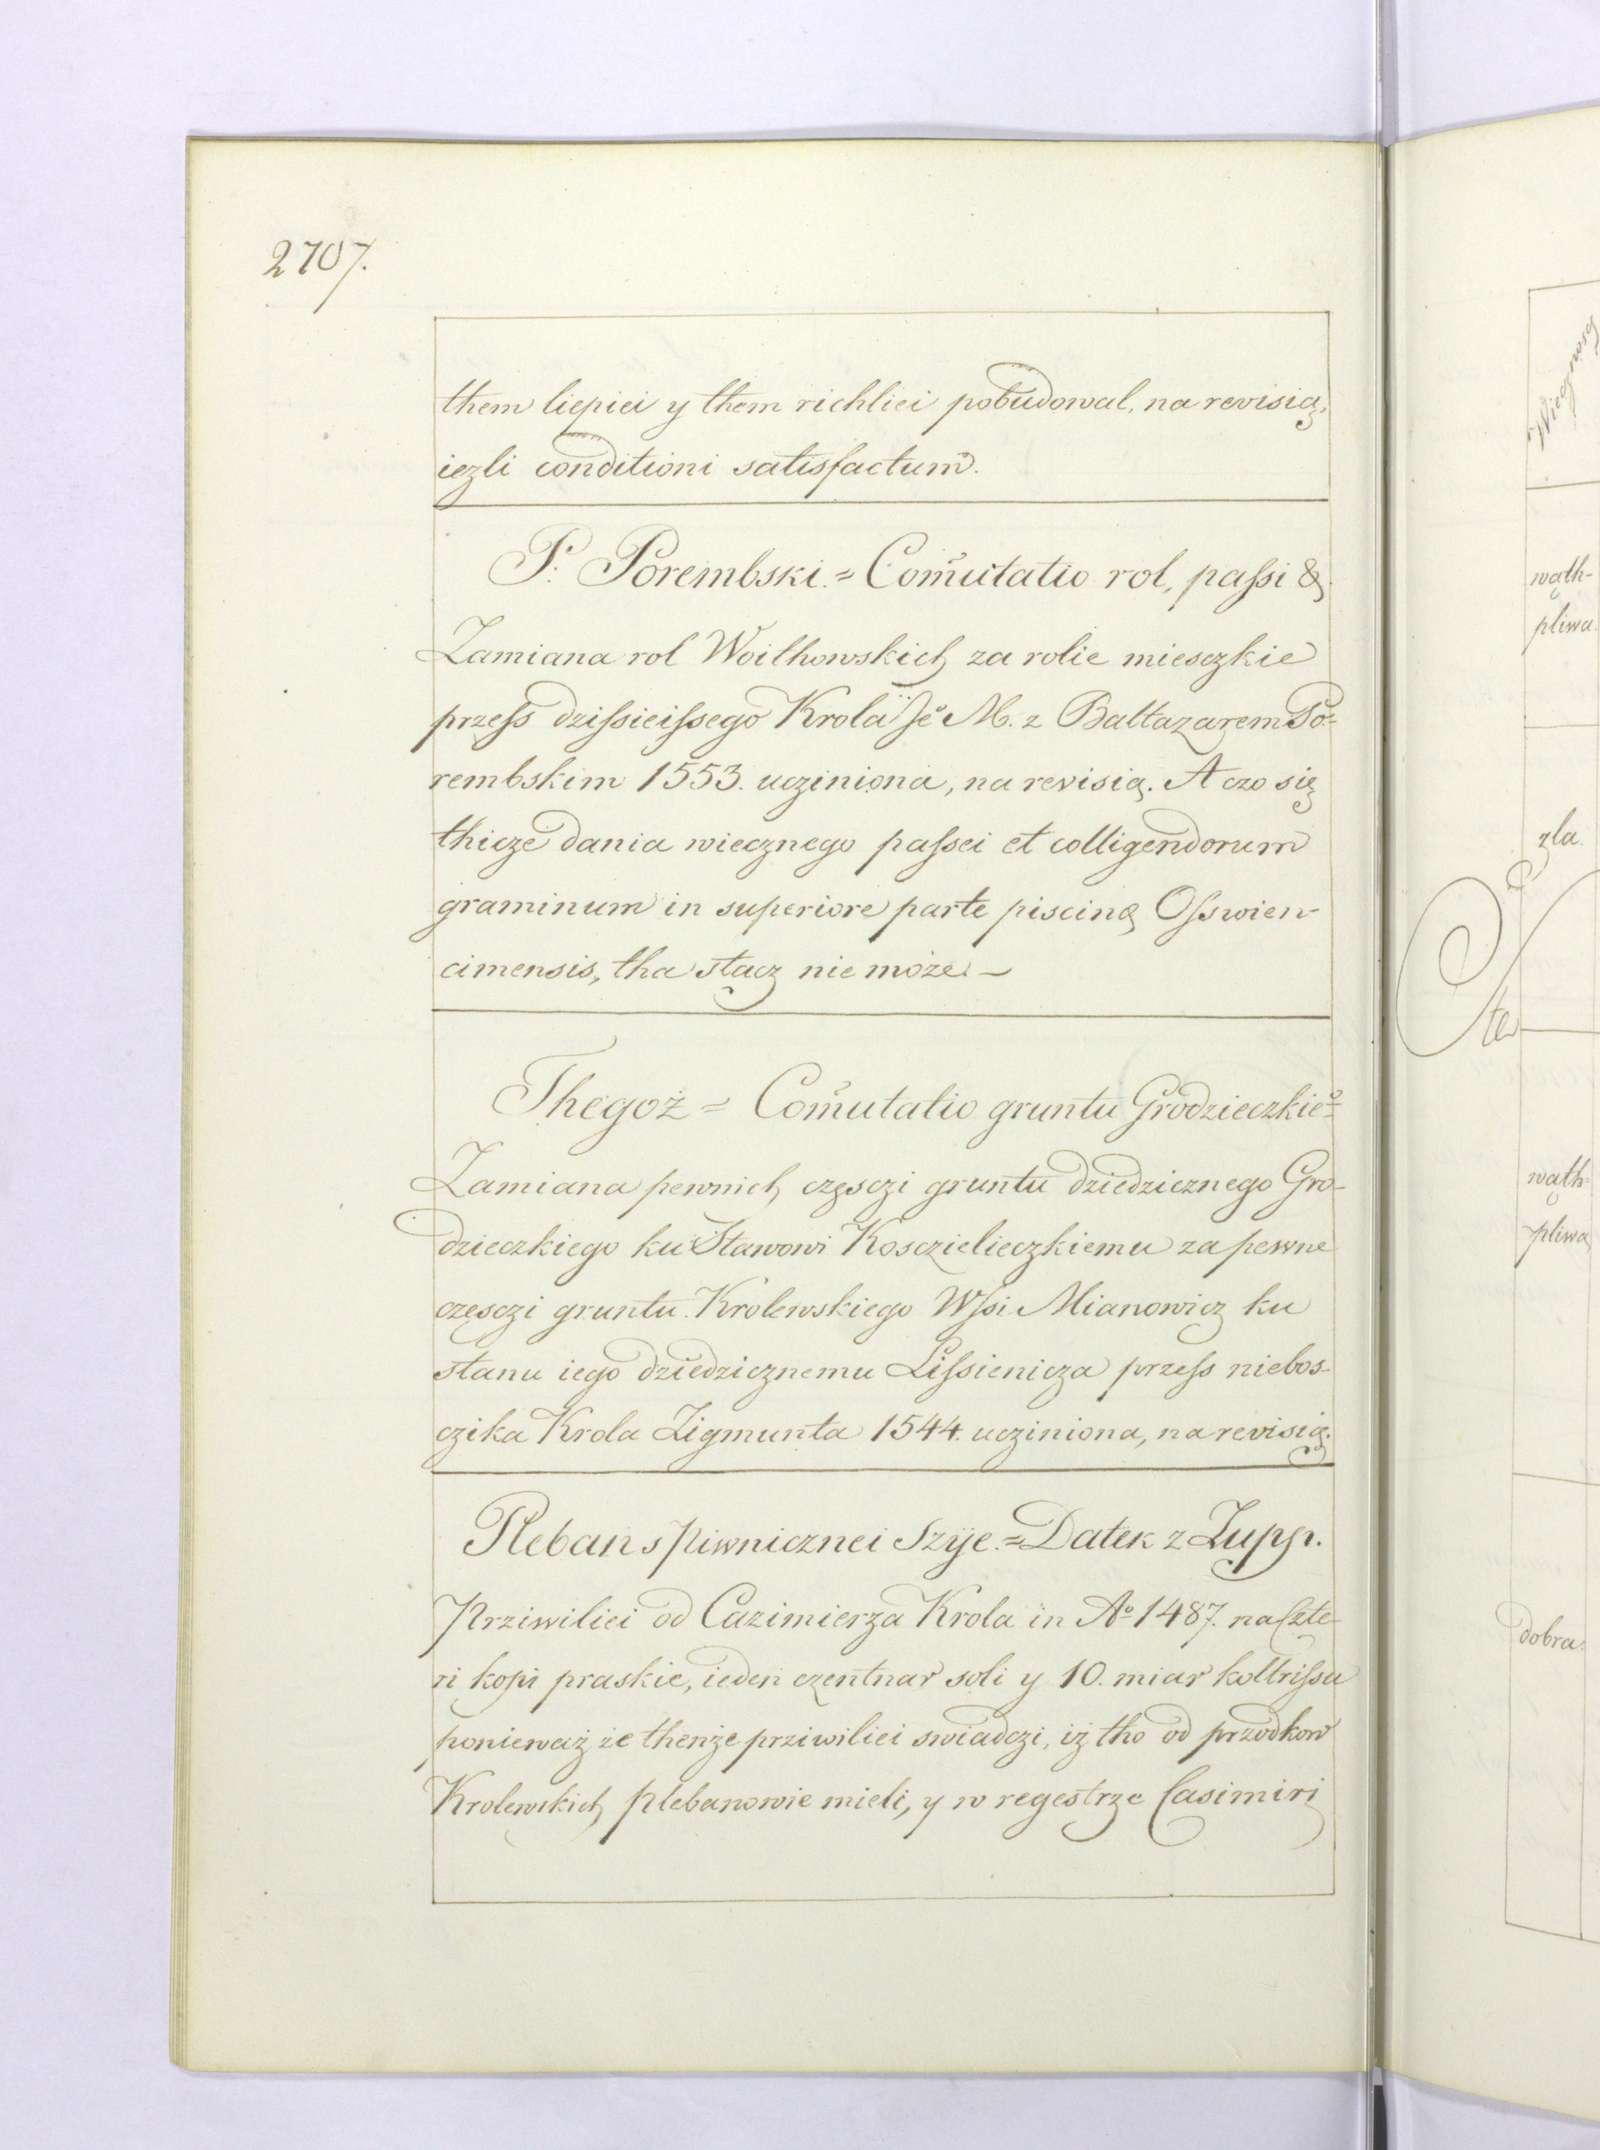 2707.
them liepiei y them richliei pobudowal, na revisią,
iezli conditioni satisfactum.
P. Porembski. = Com̃utatio rol, passi &
Zamiana rol Woithowskich za rolie miesczkie
przess dzissieissego Krola Je° M. z Baltazarem Po-
rembskim 1553. ucziniona, na revisią. A czo się
thicze dania wiecznego passei et colligendorum
graminum in superiore parte piscinę Osswien-
cimensis, tha stacz nie może. —
Thegoż = Com̃utatio gruntu Grodzieczkie°
Zamiana pewnich częsczi gruntu dziedzicznego Gro-
dzieczkiego ku Stawowi Kosczielieczkiemu za pewne
częsczi gruntu Krolewskiego Wsi Mianowicz ku
stanu iego dziedzicznemu Lissienicza przess niebos-
czika Krola Zigmunta 1544. ucziniona, na revisią.
Pleban s Piwnicznei Szÿe. = Datek z Zupp.
Prziwiliei od Cazimierza Krola in A° 1487. na Czte-
ri kopi praskie, ieden czentnar soli y 10. miar koltrissu
ponieważ że thenże prziwiliei swiadczi, iż tho od przodkow
Krolewskich plebanowie mieli, y w regestrze Casimiri
wąth-
pliwa
zla.
wąth-
pliwa
dobra.